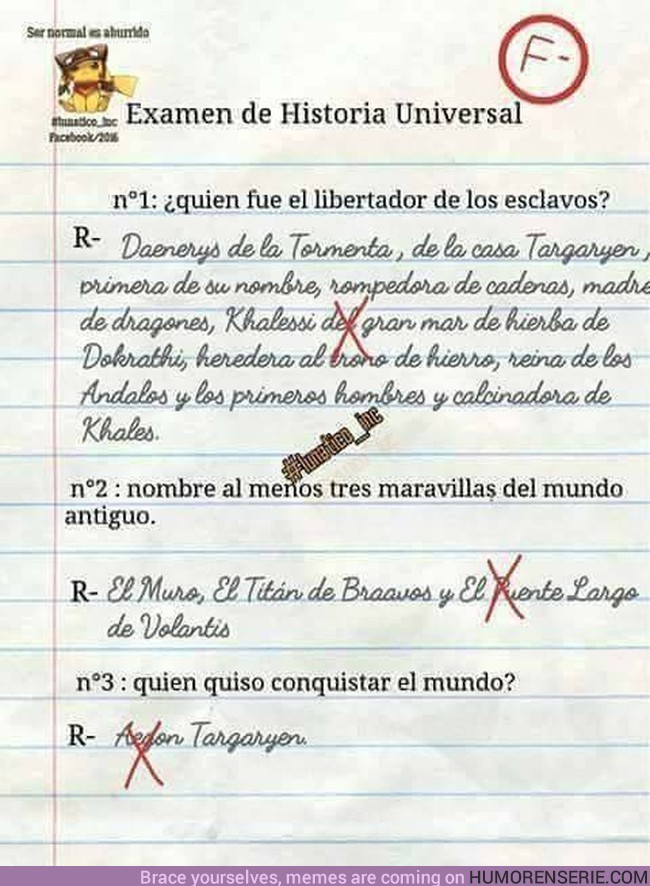 Ser normal es aburrido
#lunatico_inc
Facebook/2016
F-
Examen de Historia Universal
n°1: ¿quien fue el libertador de los esclavos?
R- Daenerys de la Tormenta, de la casa Targaryen,
primera de su nombre, rompedora de cadenas, madre
de dragones, Khalessi del gran mar de hierba de
Dokrathi, heredera al trono de hierro, reina de los
Andalos y los primeros hombres y calcinadora de
Khales.
#lunatico_inc
n°2 : nombre al menos tres maravillas del mundo
antiguo.
R- El Muro, El Titán de Braavos y El Puente Largo
de Volantis
n°3 : quien quiso conquistar el mundo?
R- Aegon Targaryen.
Brace yourselves, memes are coming on HUMORENSERIE.COM